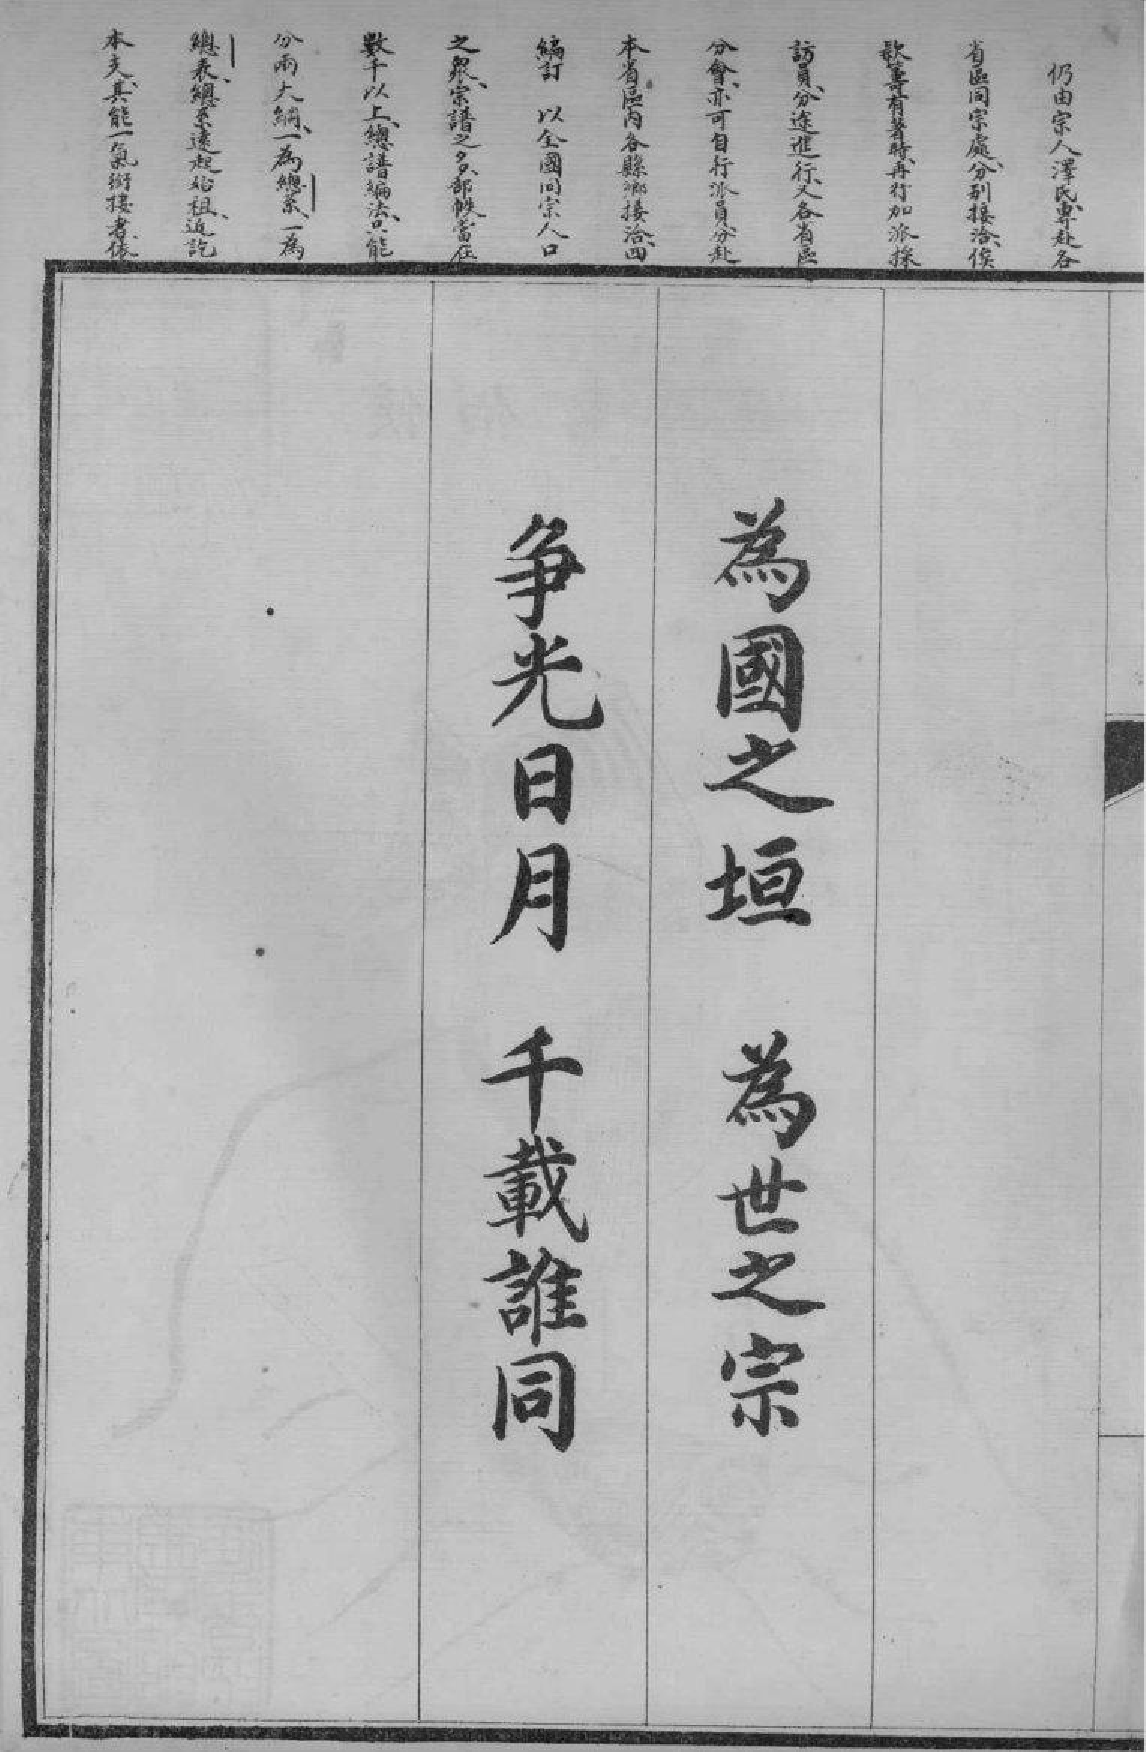 仍由宗人澤民、專赴各
省區同宗處、分别接洽、俟
欵專有著時、再行加派採
訪員、分途進行、又各省區
分會、亦可自行派員、分赴
本省區内各縣鄉接洽、四
編訂　以全國同宗人口
之衆、宗譜之多、部帙當在
數千以上、總譜編法、只能
分兩大綱、一為總系、一為
總表、總系遠起始祖、近訖
本支、其能一氣銜接者、依
為國之垣　為世之宗
爭光日月　千載誰同